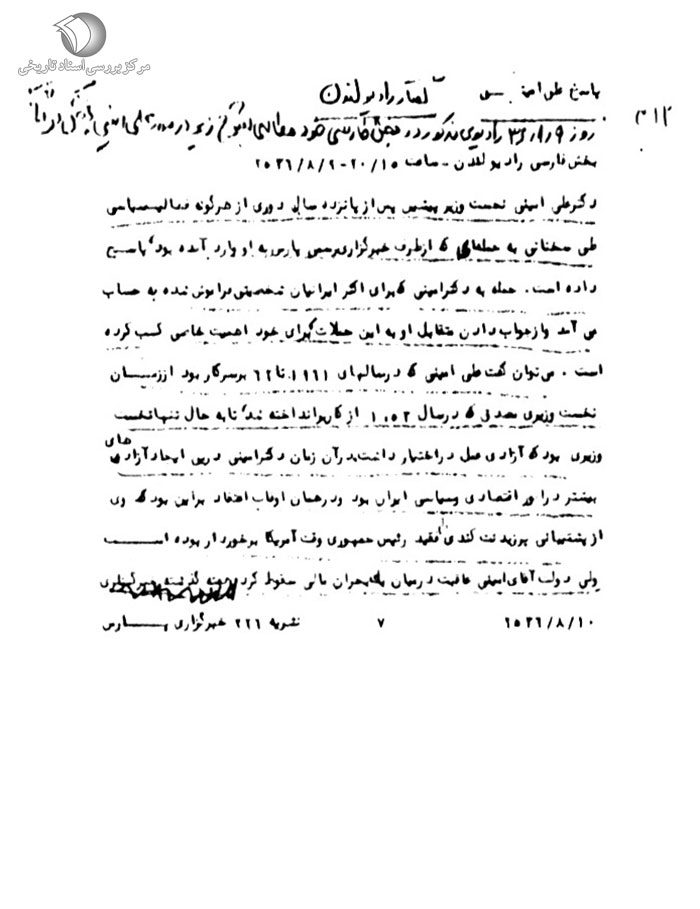 مرکز بررسی اسناد تاریخی
پاسخ علی
گفتار رادیو لندن
۳۱۲
روز ۳۶/۸/۹ رادیوی مذکور در بخش فارسی خود مطالبی زیر در مورد علی امینی
بخش فارسی رادیو لندن - ساعت ۲۰/۱۵ - ۲۵۳۶/۸/۹
دکتر علی امینی نخست وزیر پیشین پس از پانزده سال دوری از هرگونه فعالیت سیاسی
طی سخنانی به حمله‌ای که از طرف خبرگزاری رسمی پارس به او وارد آمده بود، پاسخ
داده است. حمله به دکتر امینی که برای اکثر ایرانیان شخصیتی فراموش شده به حساب
می آمد و از جواب دادن متقابل او به این حملات برای خود اهمیت خاصی کسب کرده
است. می‌توان گفت علی امینی که در سالهای ۱۹۶۱ تا ۶۲ بر سر کار بود از زمان
نخست وزیری مصدق که در سال ۱۹۵۳ از کار برانداخته شد، تا به حال تنها نخست
وزیری بود که آزادی عمل در اختیار داشت، در آن زمان دکتر امینی در پی ایجاد آزادی های
بیشتر در امور اقتصادی و سیاسی ایران بود و در همان اوقات اعتقاد بر این بود که وی
از پشتیبانی پرزیدنت کندی فقید رئیس جمهوری وقت آمریکا برخوردار بوده است
ولی دولت آقای امینی عاقبت در میان یک بحران مالی سقوط کرد. هفته گذشته خبرگزاری
نشریه ۲۲۶ خبرگزاری پارس ۷ ۲۵۳۶/۸/۱۰